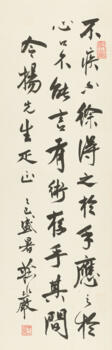 不疾不徐得之於手應之於
心口不能言有術存乎其間
今揚先生正 盛暑